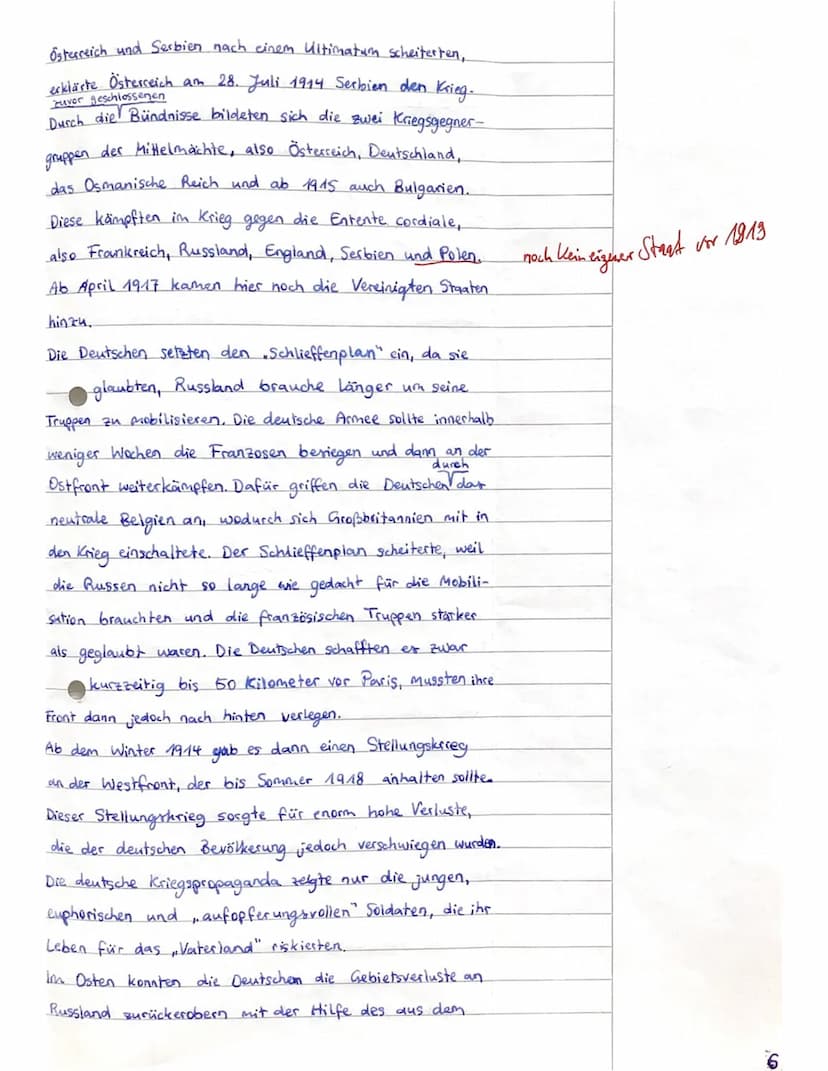 Österreich und Serbien nach einem Ultimatum scheiterten,
erklärte Österreich am 28. Juli 1914 Serbien den Krieg.
zuvor geschlossenen
Durch die Bündnisse bildeten sich die zwei Kriegsgegner-
gruppen der Mittelmächte, also Österreich, Deutschland,
das Osmanische Reich und ab 1915 auch Bulgarien.
Diese kämpften im Krieg gegen die Entente cordiale,
also Frankreich, Russland, England, Serbien und Polen. noch kein eigener Staat vor 1919
Ab April 1917 kamen hier noch die Vereinigten Staaten
hinzu.
Die Deutschen setzten den „Schlieffenplan“ ein, da sie
glaubten, Russland brauche länger um seine
Truppen zu mobilisieren. Die deutsche Armee sollte innerhalb
weniger Wochen die Franzosen besiegen und dann an der
durch
Ostfront weiterkämpfen. Dafür griffen die Deutschen das
neutrale Belgien an, wodurch sich Großbritannien mit in
den Krieg einschaltete. Der Schlieffenplan scheiterte, weil
die Russen nicht so lange wie gedacht für die Mobili-
sation brauchten und die französischen Truppen stärker
als geglaubt waren. Die Deutschen schafften es zwar
kurzzeitig bis 50 Kilometer vor Paris, mussten ihre
Front dann jedoch nach hinten verlegen.
Ab dem Winter 1914 gab es dann einen Stellungskrieg
an der Westfront, der bis Sommer 1918 anhalten sollte.
Dieser Stellungskrieg sorgte für enorm hohe Verluste,
die der deutschen Bevölkerung jedoch verschwiegen wurden.
Die deutsche Kriegspropaganda zeigte nur die jungen,
euphorischen und „aufopferungsvollen“ Soldaten, die ihr
Leben für das „Vaterland“ riskierten.
Im Osten konnten die Deutschen die Gebietsverluste an
Russland zurückerobern mit der Hilfe des aus dem
6